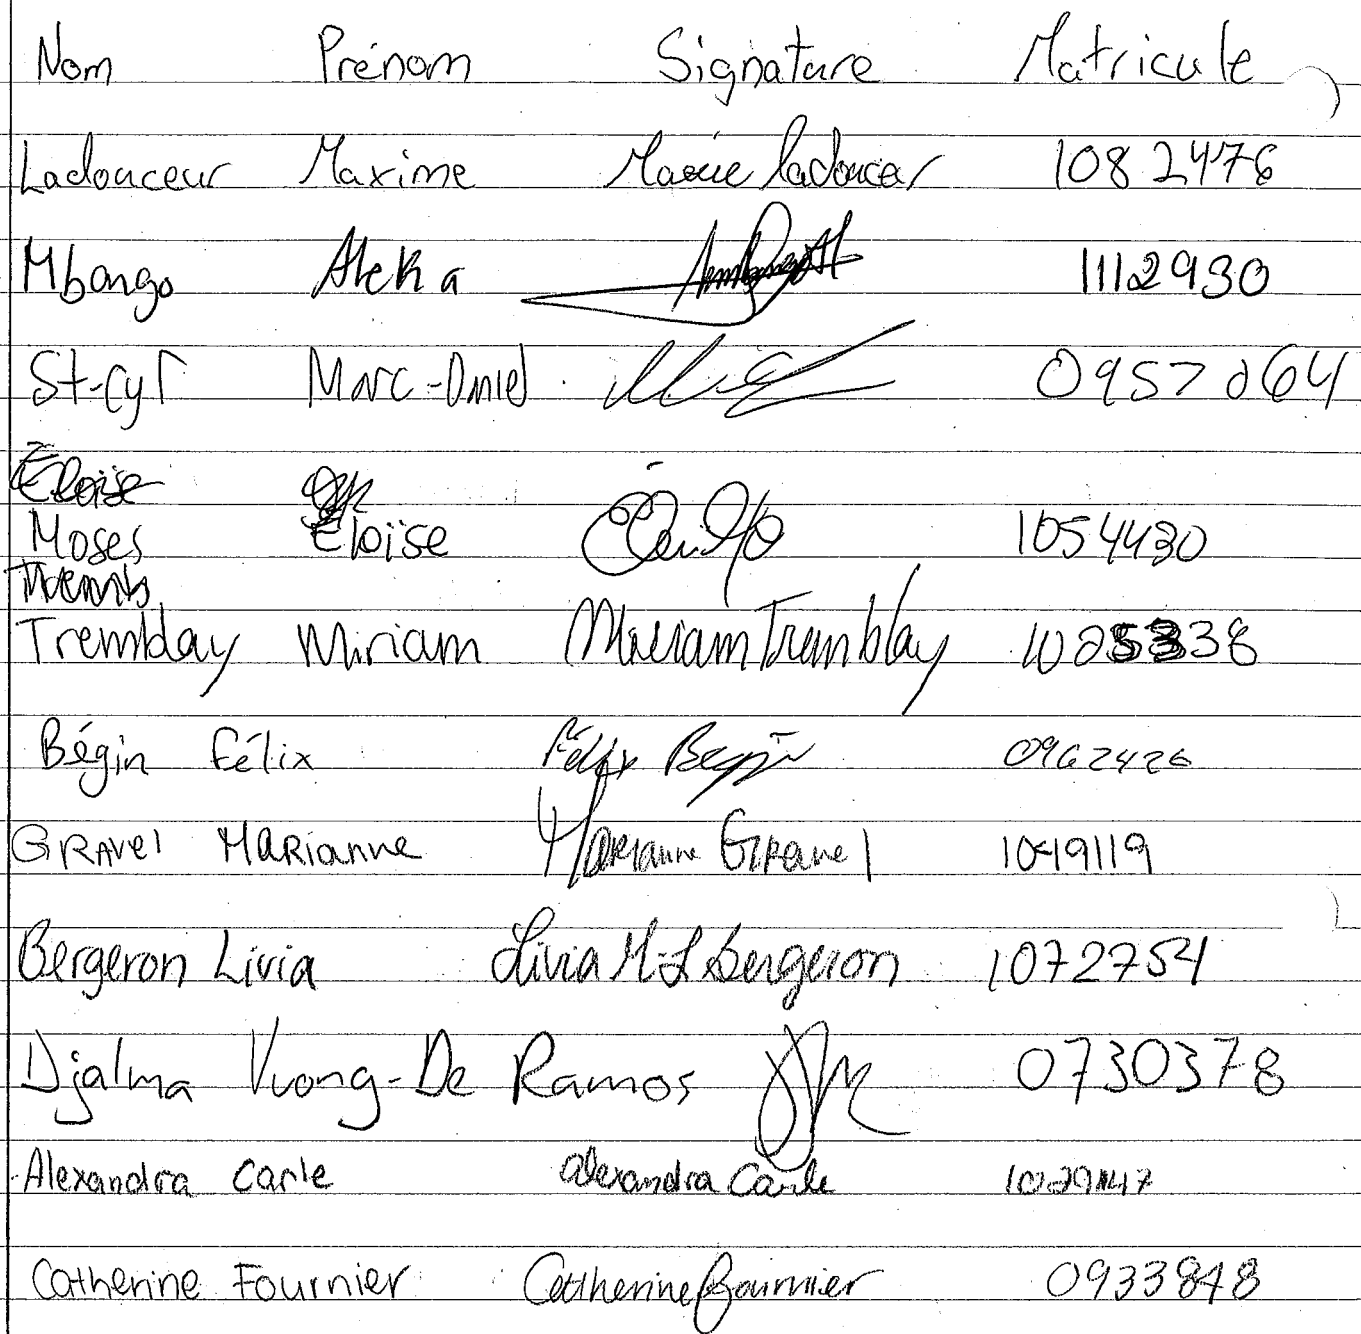 Nom Prénom Signature Matricule
Ladouceur Maxime Maxime Ladouceur 1082476
Mbongo Aleka 1112930
St-Cyr Marc-Daniel 0957264
Éloïse
Moses Éloïse 1054430
Tremblay Miriam Miriam Tremblay 1025338
Bégin Félix Félix Bégin 0962426
GRAVEl MARianne Marianne Gravel 1049119
Bergeron Livia Livia M-L Bergeron 1072754
Djalma Vuong-De Ramos 0730378
Alexandra Carle Alexandra Carle
Catherine Fournier Catherine Fournier 0933848